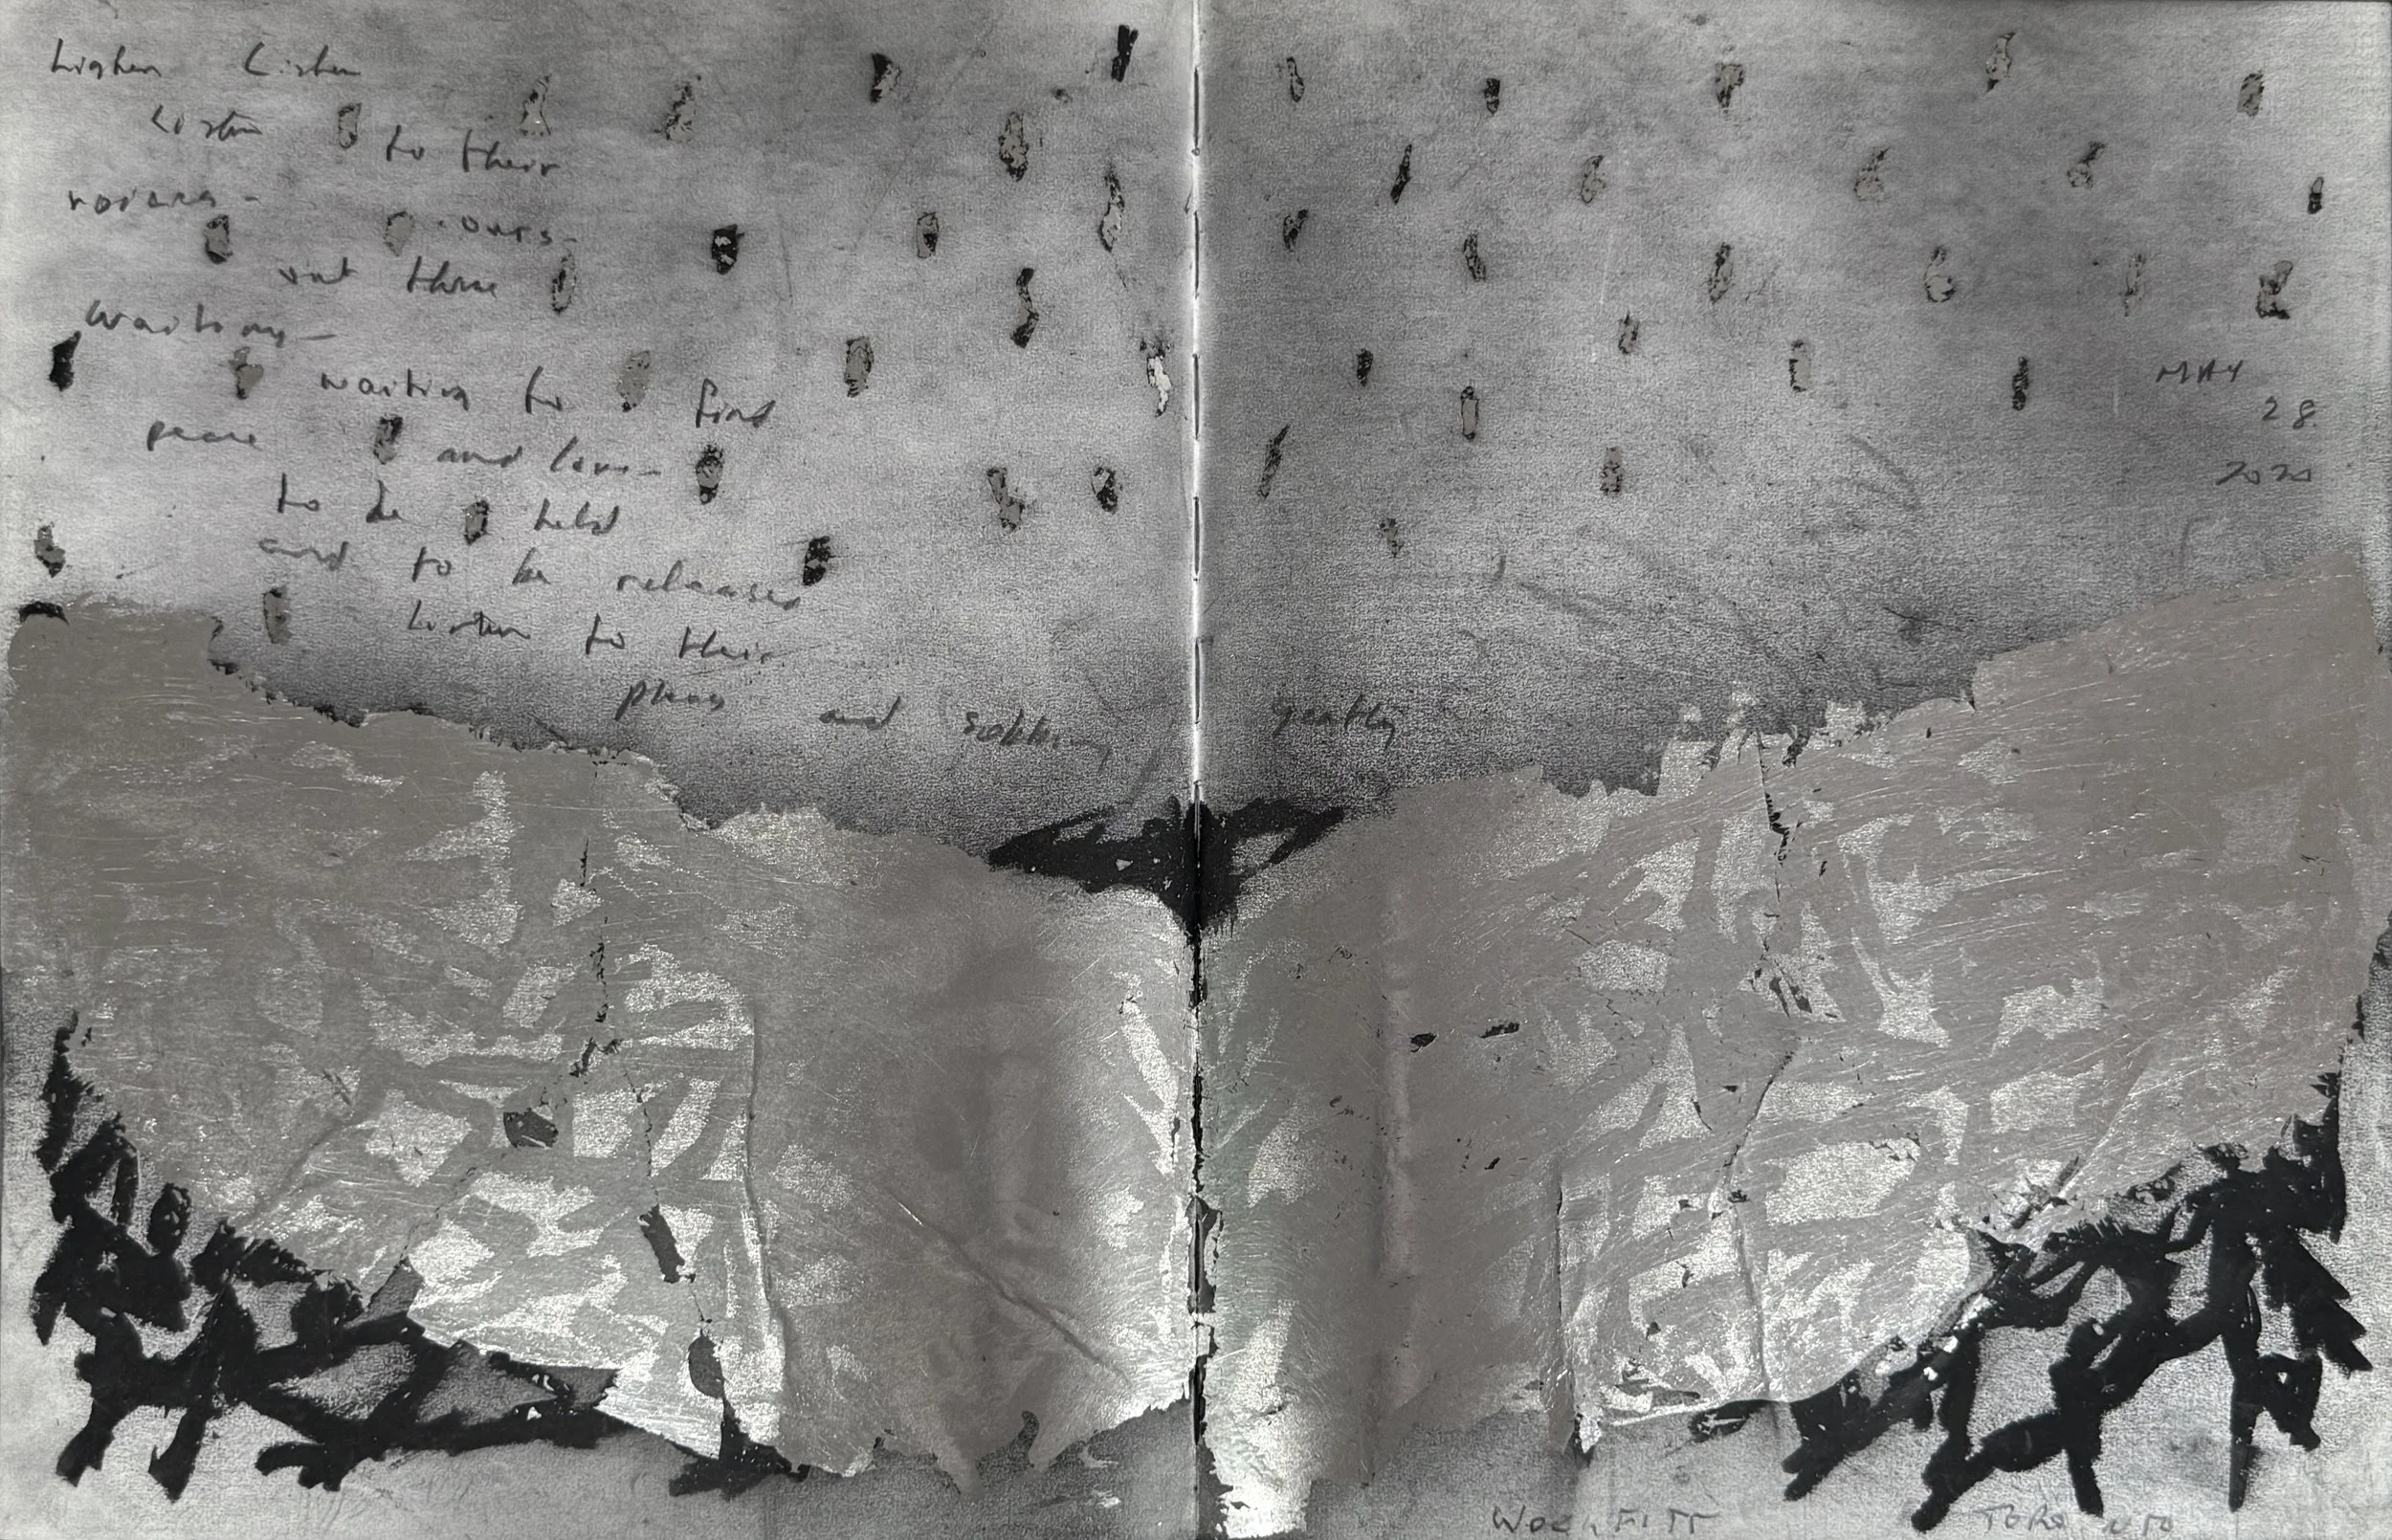 Listen Listen
Listen to their
voices -
ours -
out there
waiting -
waiting to find
peace and love -
to be held
and to be released
Listen to their
pleas and sobbing gently
MAY
28
2020
TORONTO